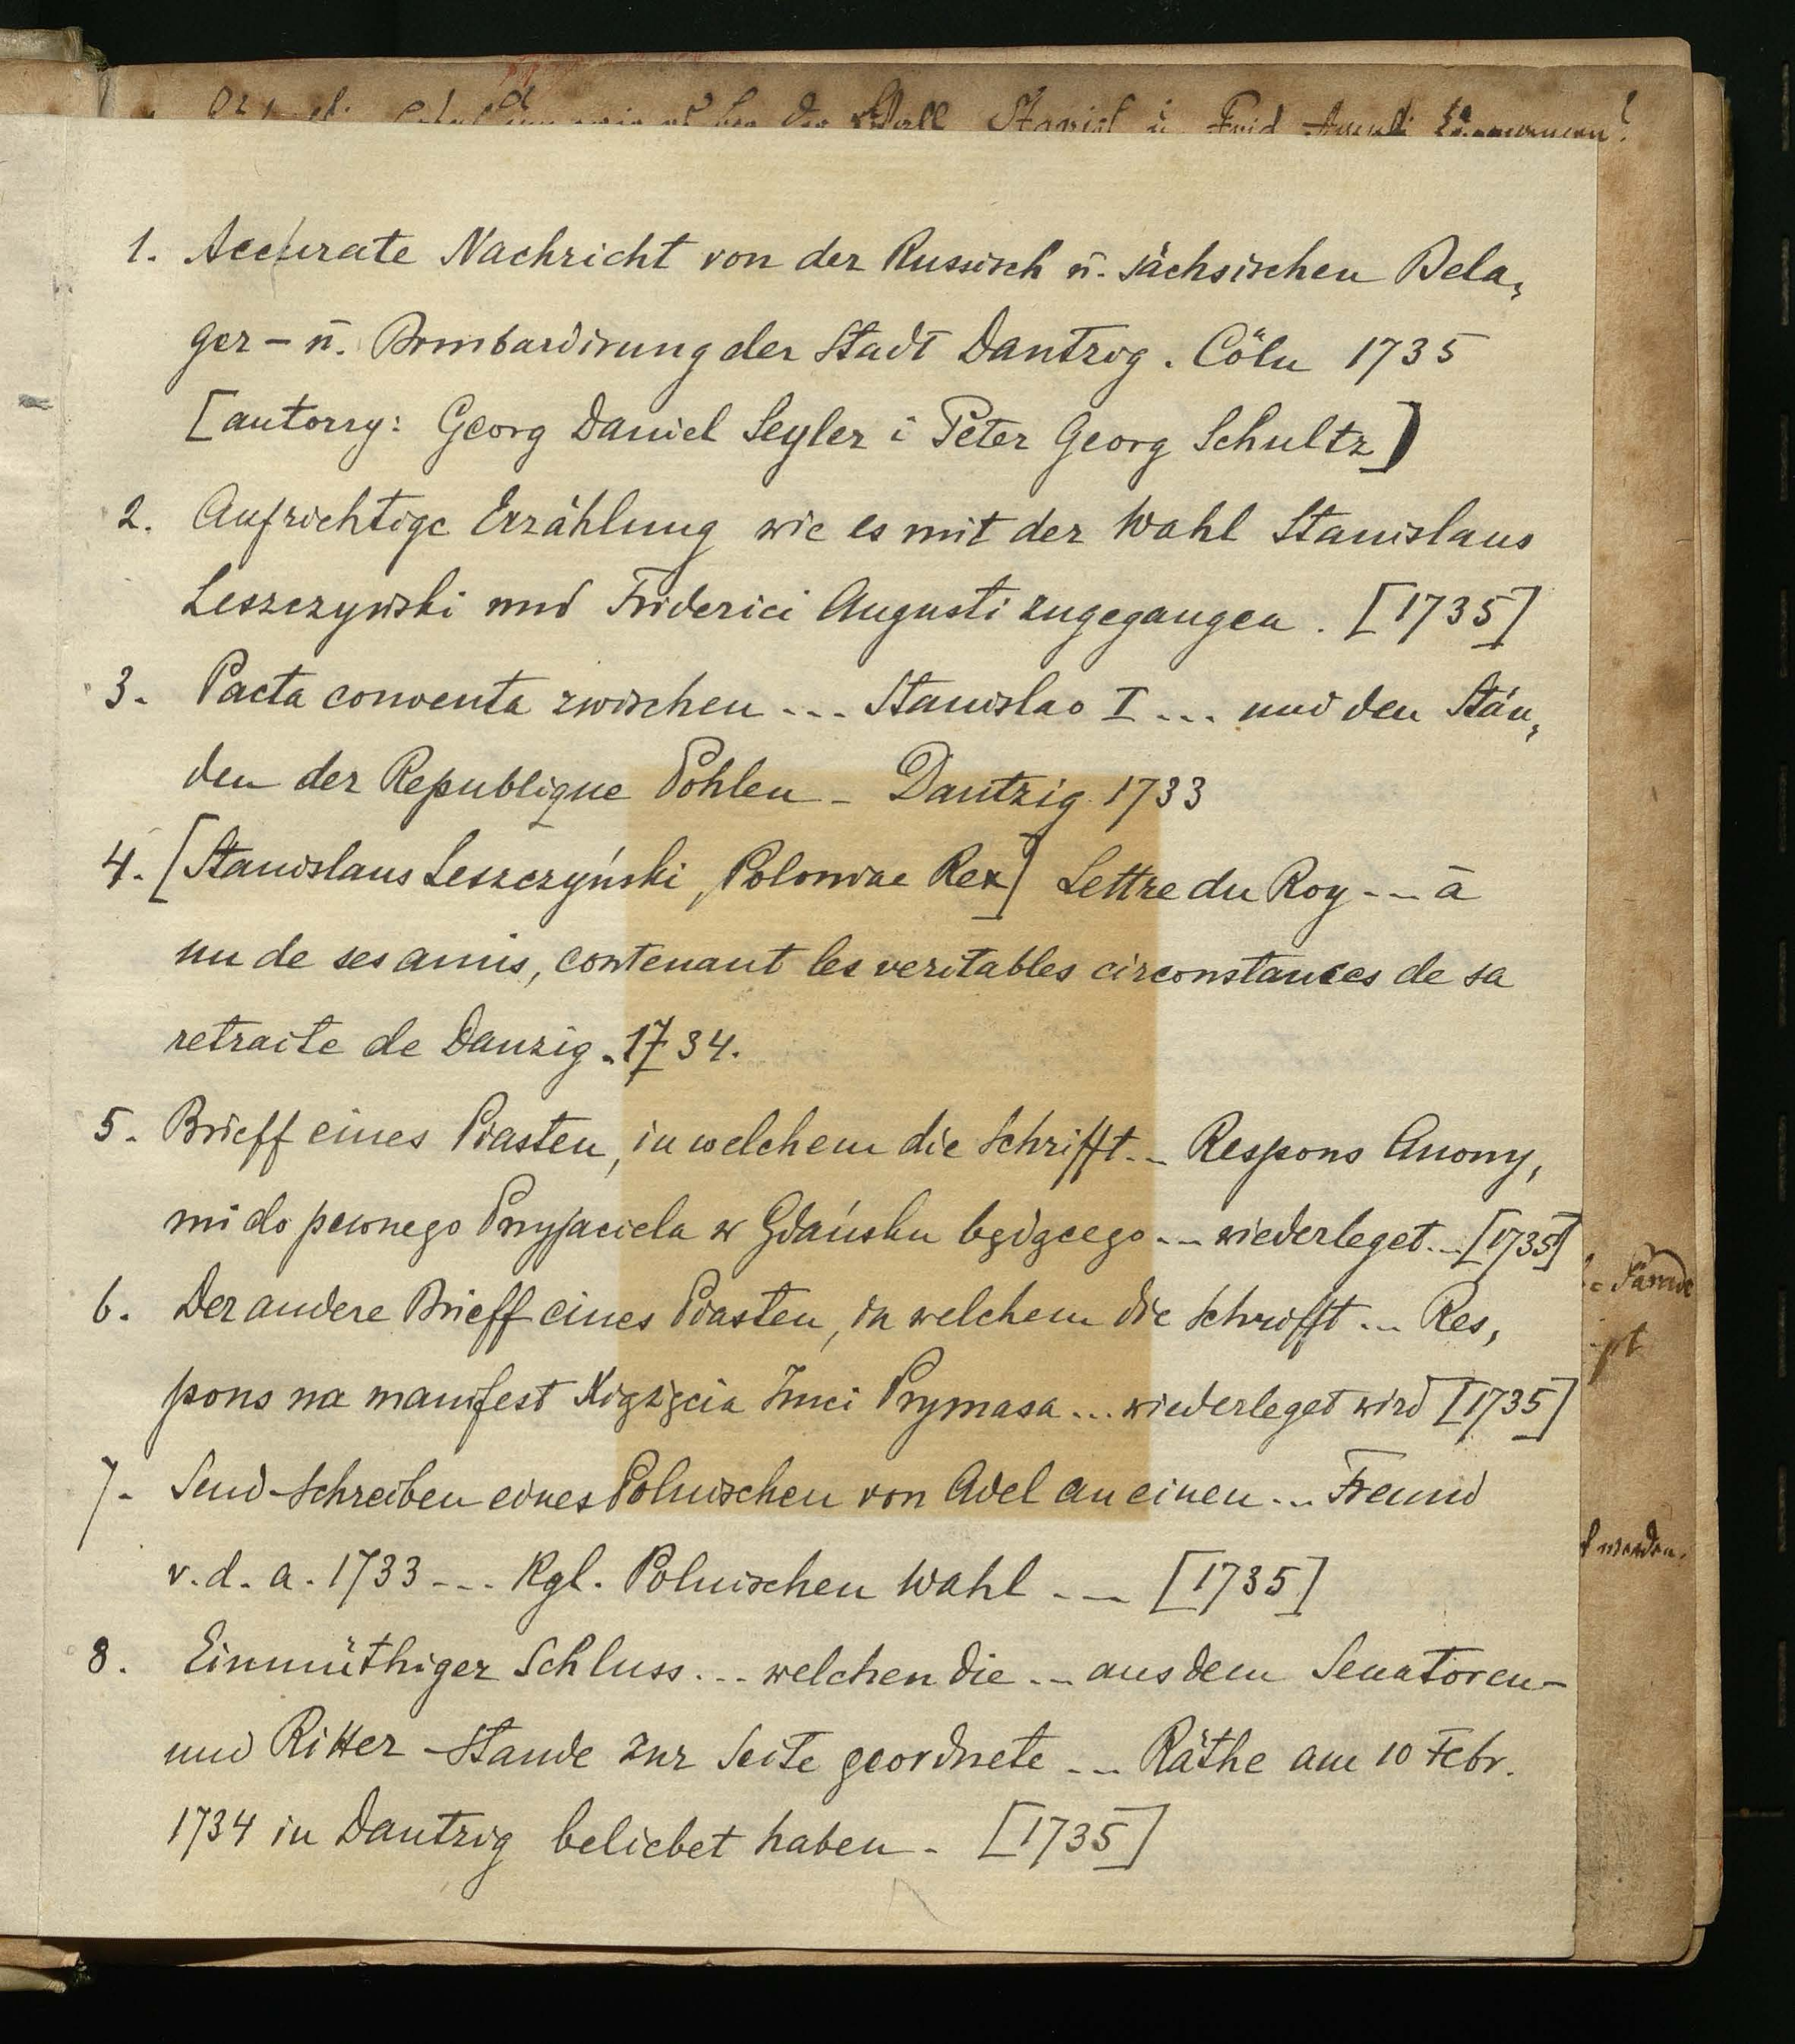 Wall Stanisl u. Frid
1. Accurate Nachricht von der Russisch ū. sächsischen Bela,
ger – ū. Bombardirung der Stadt Dantzig. Cöln 1735
[autorzy: Georg Daniel Seyler i Peter Georg Schultz]
2. Aufrichtige Erzählung wie es mit der Wahl Stanislaus
Leszczynski und Friderici Augusti zugegangen. [1735]
3. Pacta conventa zwischen ... Stanislao I ... und den Stän,
den der Republique Pohlen – Dantzig 1733
4. [Stanislaus Leszczyński, Poloniae Rex] Lettre du Roy ... à
un de ses amis, contenant les veritables circonstances de sa
retraite de Danzig. 1734.
5. Brieff eines Piasten, in welchem die Schrifft... Respons Anony,
mi do pewnego Przyjaciela w Gdańsku będącego ... wiederleget... [1735]
6. Der andere Brieff eines Piasten, in welchem die Schrifft ... Res,
pons na manifest Xiążęcia Jmci Prymasa ... wiederleget wird [1735]
7. Send-Schreiben eines Polnischen von Adel an einen ... Freund
v. d. a. 1733 ... Kgl. Polnischen Wahl ... [1735]
8. Einmüthiger Schluss ... welchen die ... aus dem Senatoren-
und Ritter-Stande zur Seite geordnete ... Räthe am 10 Febr.
1734 in Dantzig beliebet haben. [1735]